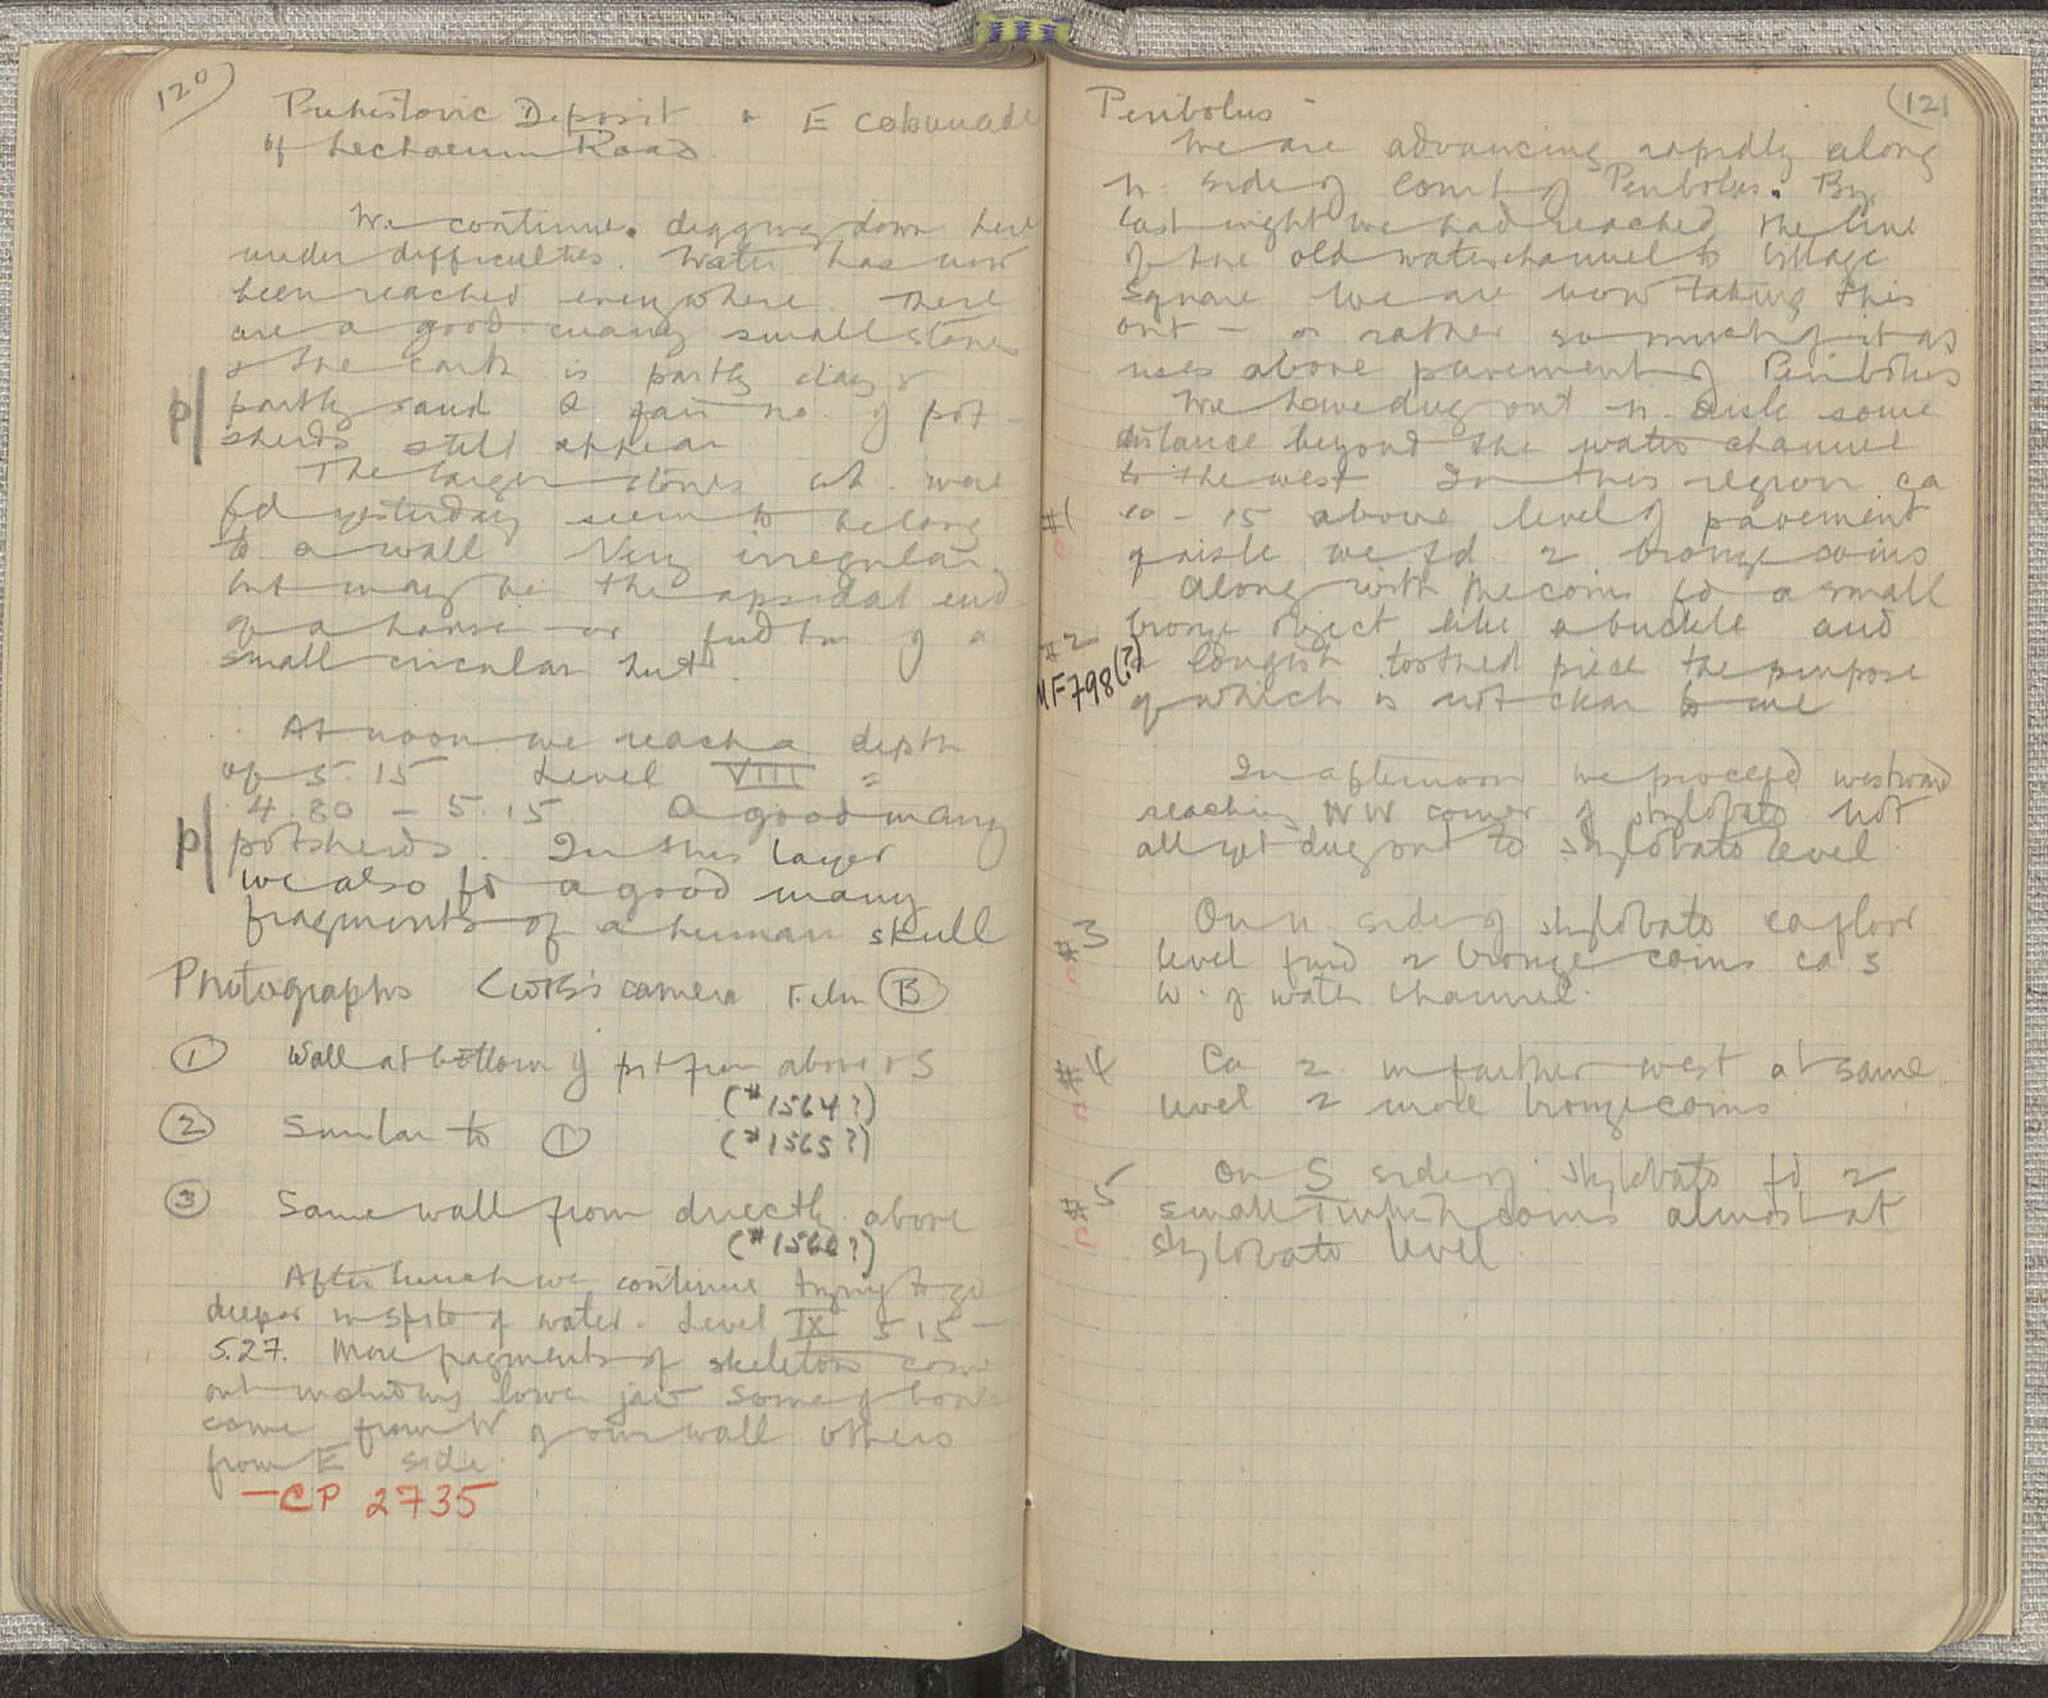 120
Prehistoric Deposit E Colonnade
of Lechaeum Road
We continue digging down here
under difficulties. Water has now
been reached everywhere. There
are a good many small stones
& the earth is partly clay &
p partly sand A fair no. of pot-
sherds still appear
The larger stones wh. were
fd yesterday seem to belong
to a wall Very irregular
but may be the apsidal end
of a house or fndtn of a
small circular hut.
At noon we reach a depth
of 5.15 Level VIII =
4.80 - 5.15 A good many
p potsherds. In this layer
we also fd a good many
fragments of a human skull
Photographs camera Film B
1 Wall at bottom of pit from above & S
(#1564?)
2 Similar to 1 (#1565?)
3 Same wall from directly above
(#1566?)
After lunch we continue trying to go
deeper in spite of water. Level IX 5.15 -
5.27. More fragments of skeleton come
out including lower jaw Some of bones
come from W of our wall others
from E side.
- CP 2735
121
Peribolus -
We are advancing rapidly along
n. side of Court of Peribolus. By
last night we had reached the line
of the old water channel to Village
Square We are now taking this
out - or rather so much of it as
rises above pavement of Peribolus
We have dug out n. aisle some
distance beyond the water channel
to the west In this region ca
#1 10 - 15 above level of pavement
c of aisle we fd. 2 bronze coins
Along with the coins fd a small
#2 bronze object like a buckle and
MF798(?) a longish toothed piece the purpose
of which is not clear to me
In afternoon we proceed westward
reaching NW corner of stylobate not
all yet dug out to stylobate level
On n. side of stylobate ca floor
#3 level fnd 2 bronze coins ca 5
c W. of water channel.
#4 Ca 2 m farther west at same
c level 2 more bronze coins
On S side of stylobate fd 2
#5 small Turkish coins almost at
c stylobate level